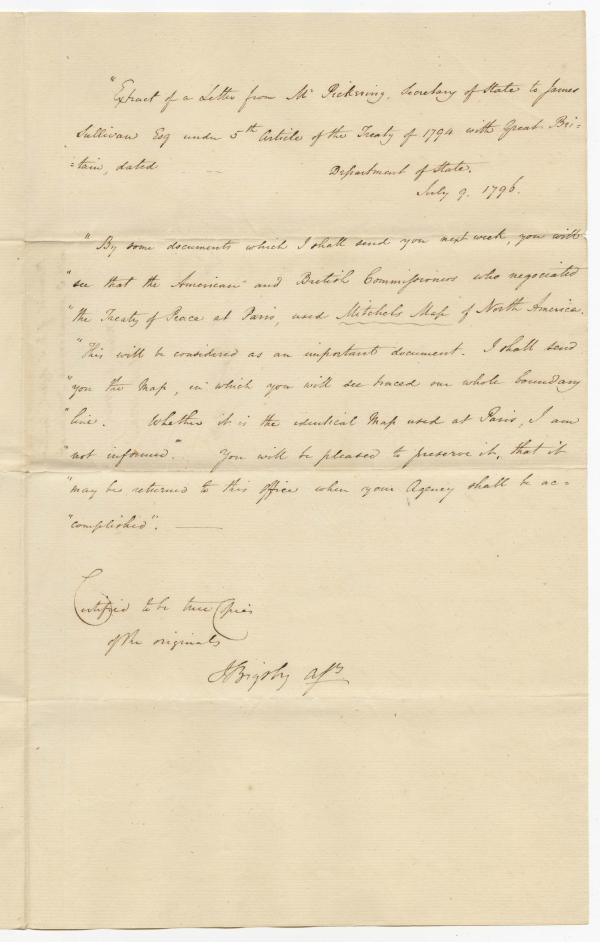 "Extract of a Letter from Mr Pickering, Secretary of State to James
Sullivan Esq under 5th Article of the Treaty of 1794 with Great Bri-
=tain, dated —
Department of State.
July 9. 1796.
"By some documents which I shall send you next week, you will
"see that the American and British Commissioners who negociated
"the Treaty of Peace at Paris, used Mitchels Map of North America.
"This will be considered as an important document. I shall send
"you the Map, in which you will see traced our whole boundary
"line. Whether it is the identical Map used at Paris, I am
"not informed." You will be pleased to preserve it, that it
"may be returned to this office when your Agency shall be ac=
"complished". —
Certified to be true Copies
of the originals
J Bigsby